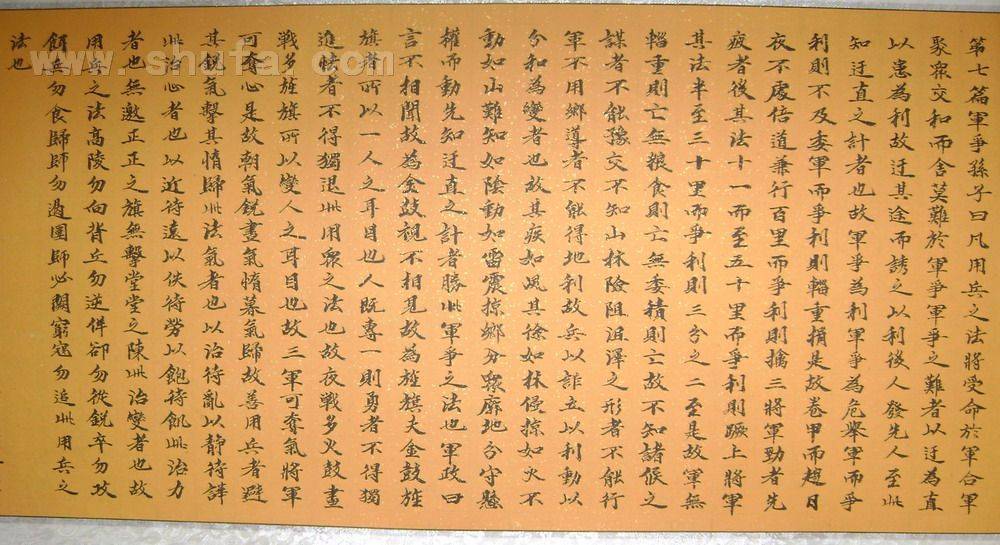 第七篇軍爭孫子曰凡用兵之法將受命於軍合軍
聚衆交和而舍莫難於軍爭軍爭之難者以迂為直
以患為利故迂其途而誘之以利後人發先人至此
知迂直之計者也故軍爭為利軍爭為危舉軍而爭
利則不及委軍而爭利則輜重捐是故卷甲而趨日
夜不處倍道兼行百里而爭利則擒三將軍勁者先
疲者後其法十一而至五十里而爭利則蹶上將軍
其法半至三十里而爭利則三分之二至是故軍無
輜重則亡無粮食則亡無委積則亡故不知諸侯之
謀者不能豫交不知山林險阻沮澤之形者不能行
軍不用鄉導者不能得地利故兵以詐立以利動以
分和為變者也故其疾如風其徐如林侵掠如火不
動如山難知如陰動如雷震掠鄉分衆廓地分守懸
權而動先知迂直之計者勝此軍爭之法也軍政曰
言不相聞故為金鼓視不相見故為旌旗夫金鼓旌
旗者所以一人之耳目也人既專一則勇者不得獨
進怯者不得獨退此用衆之法也故夜戰多火鼓晝
戰多旌旗所以變人之耳目也故三軍可奪氣將軍
可奪心是故朝氣銳晝氣惰暮氣歸故善用兵者避
其銳氣擊其惰歸此法氣者也以治待亂以靜待譁
此治心者也以近待遠以佚待勞以飽待飢此治力
者也無邀正正之旗無擊堂堂之陳此治變者也故
用兵之法高陵勿向背丘勿逆佯卻勿從銳卒勿攻
餌兵勿食歸師勿遏圍師必闕窮寇勿追此用兵之
法也
www.shufa.com